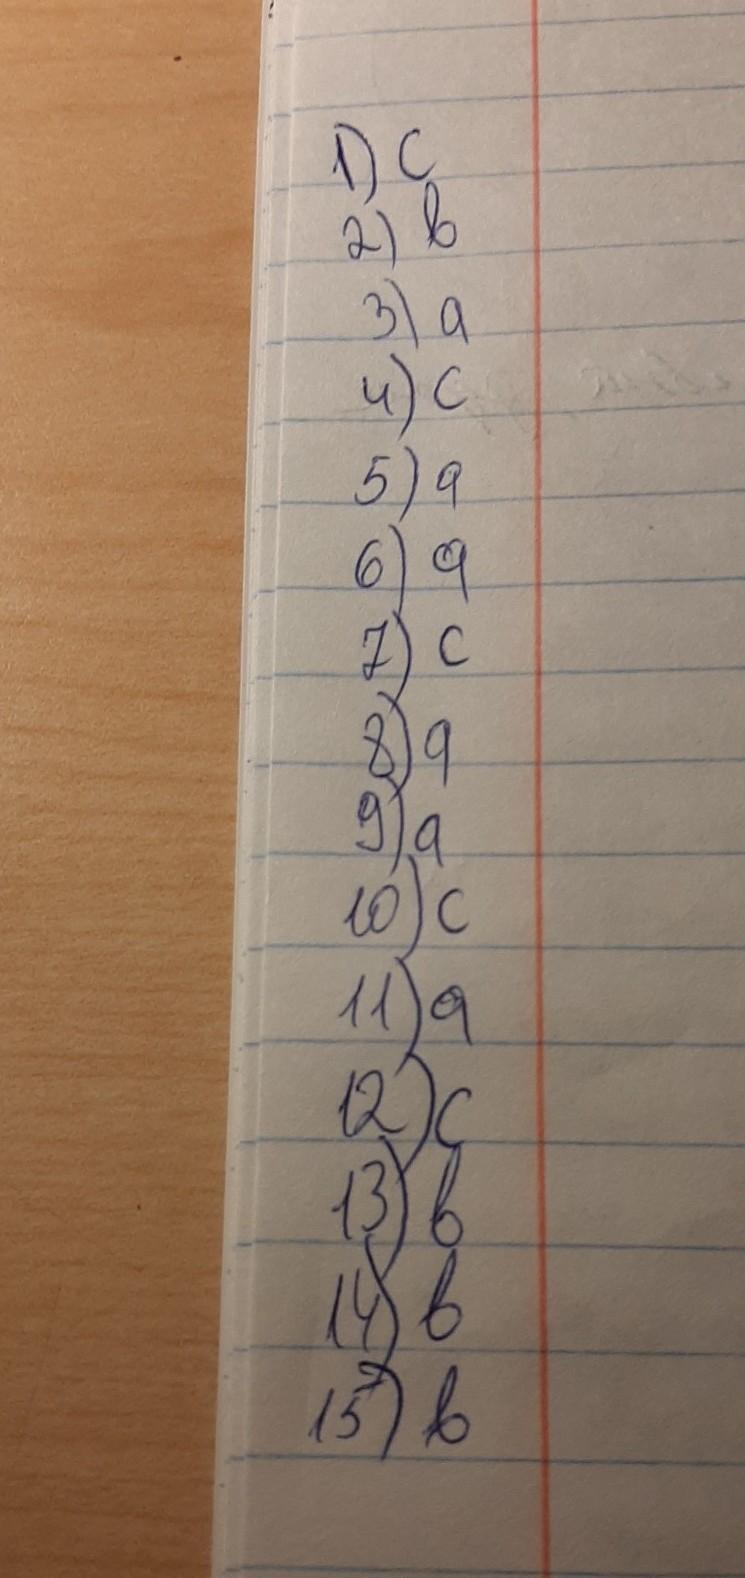 1) c
2) b
3) a
4) c
5) a
6) a
7) c
8) a
9) a
10) c
11) a
12) c
13) b
14) b
15) b